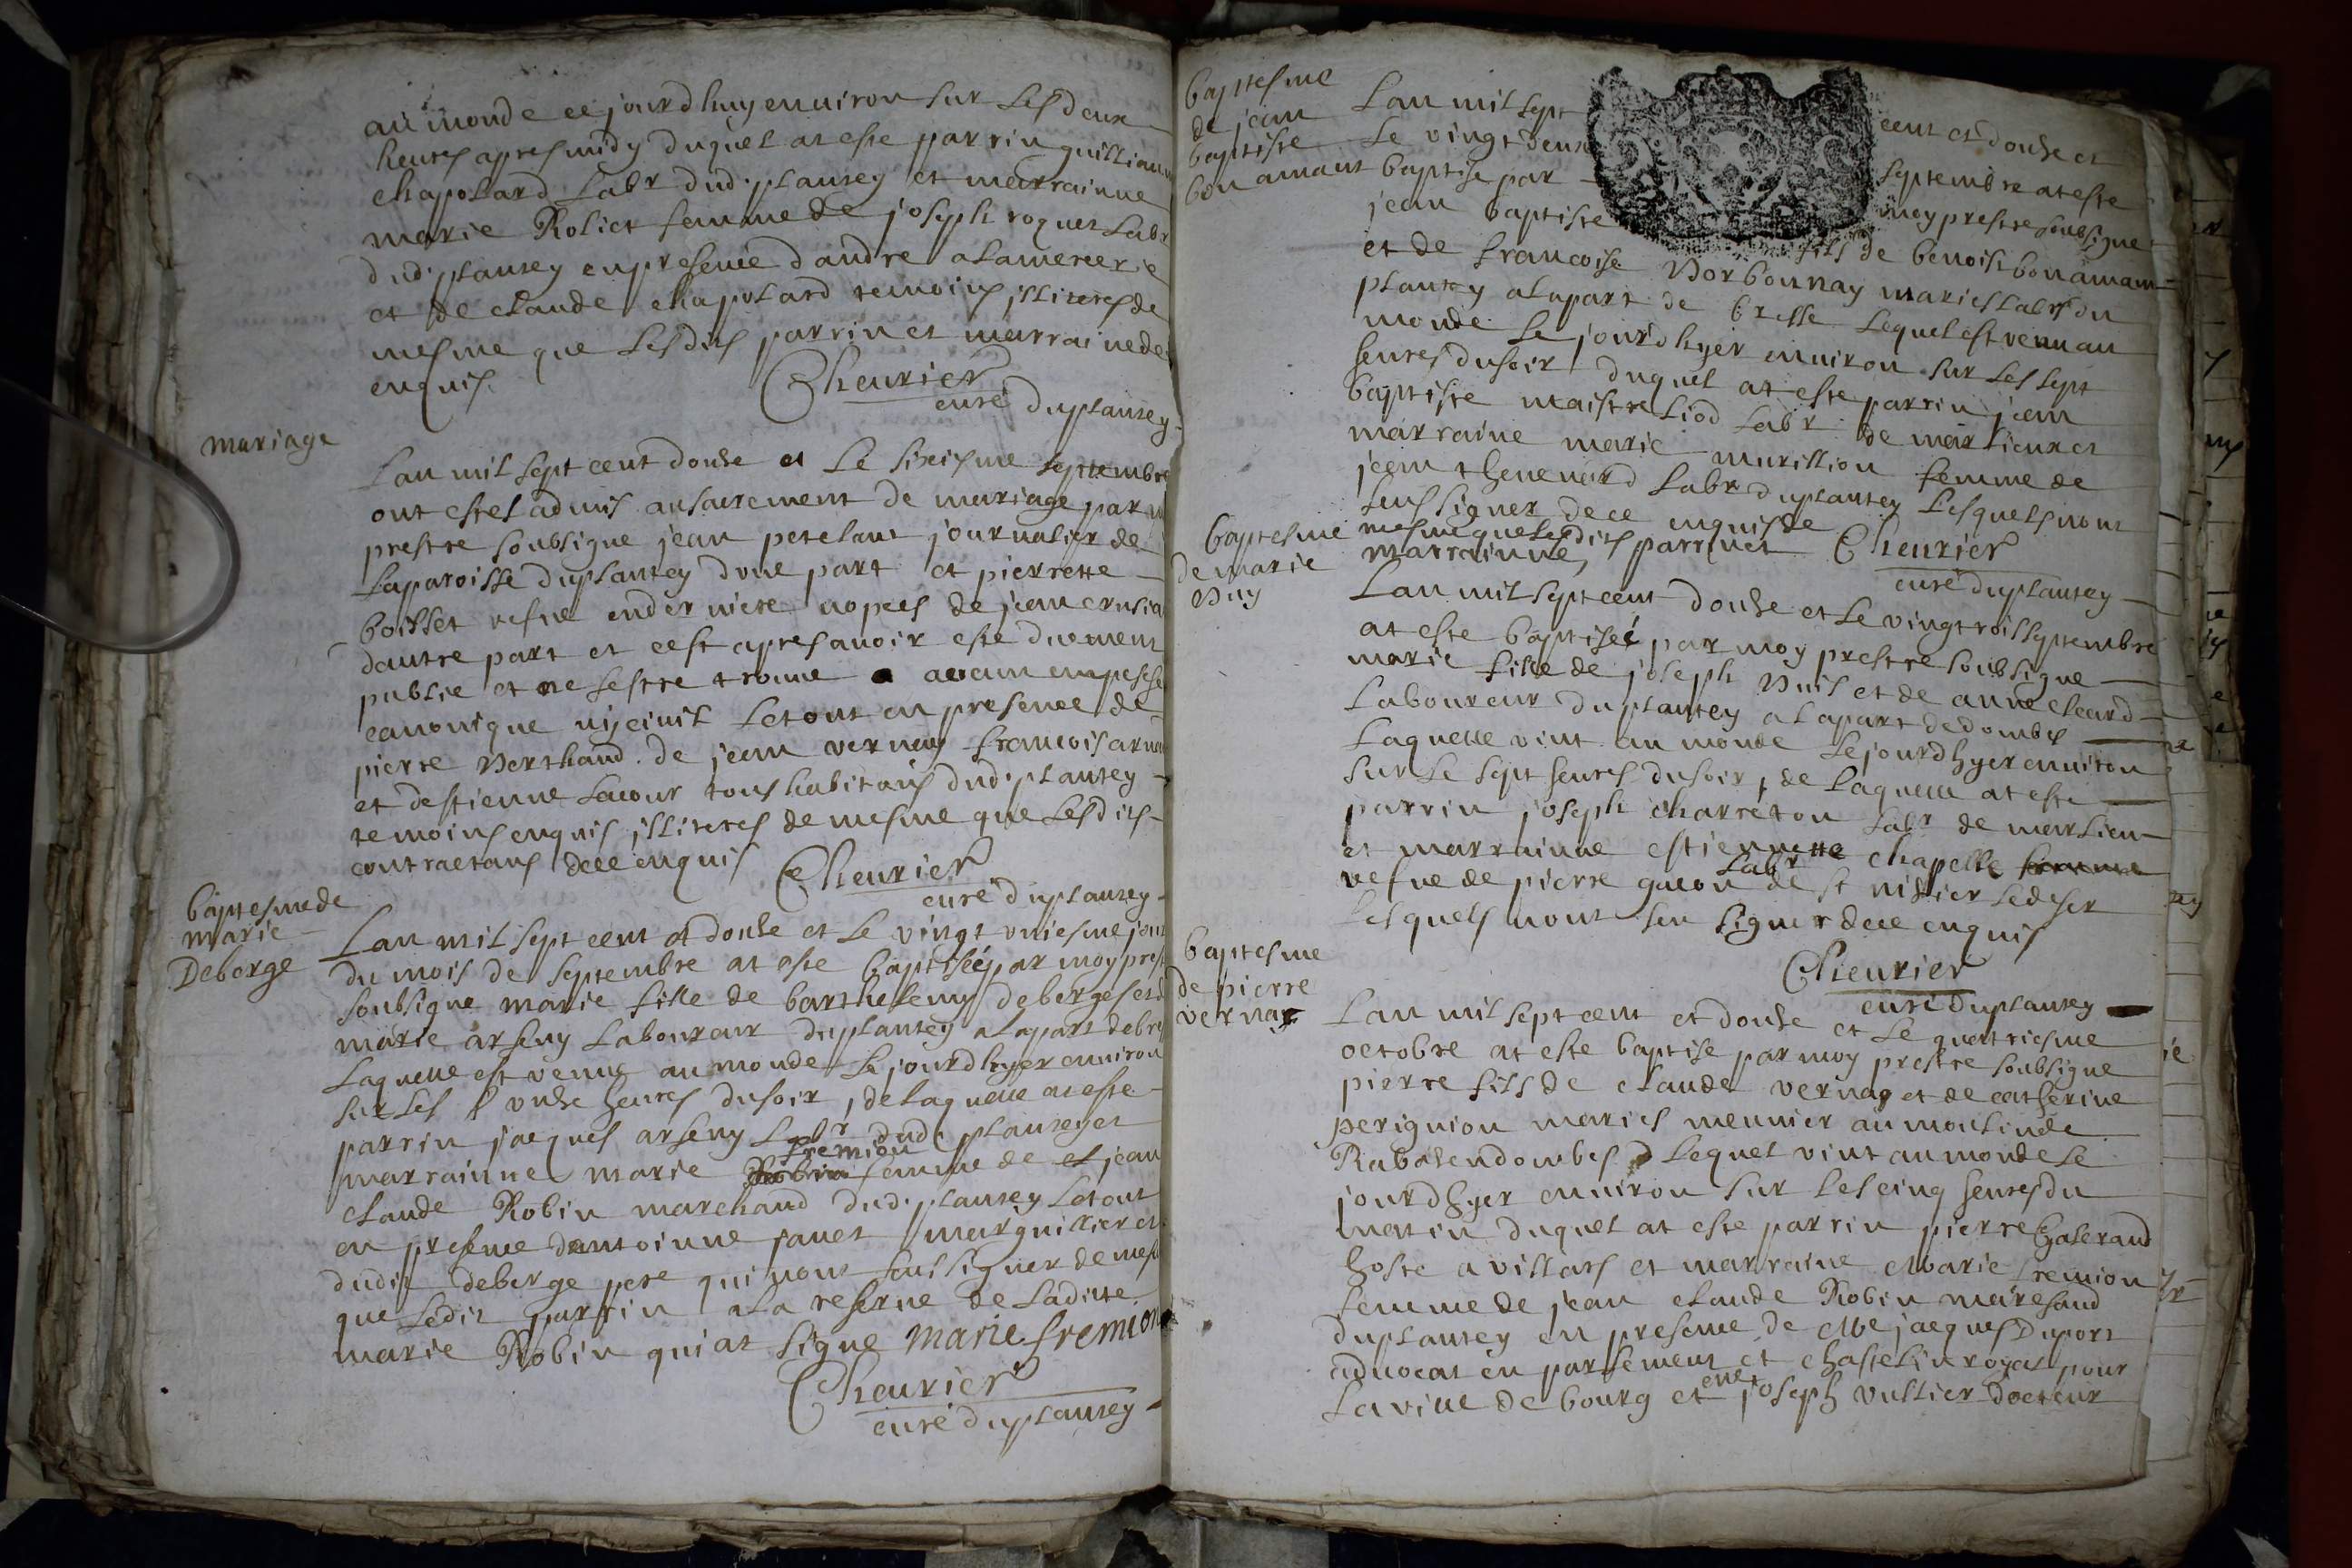 au monde ce jourdhuy enuiron sur les deux
heures apres midy duquel at esté parrin guilliaume
chapolard labr dud. plantey et marrainne
marie Roliet femme de joseph roquet labr
dud. plantey en presence dandre alamercerie
et de claude chapolard temoins illiteres de
mesme que lesdits parrin et marraine de
enquis. Cheurier
curé du plantey
mariage
Lan mil sept cent douse et le sixiesme septembre
ont estes admis au sacrement de mariage par
prestre soubsigne jean petelant journalier de
la paroisse du plantey dune part et pierrette
boisset vefue en derniere nopces de jean
dautre part et cest apres auoir esté duement
publie et ne sestre trouue aucun
canonique ny ciuil le tout en presence de
pierre Verthaud de jean vernay francois
et destienne lacour tous habitans dud. plantey
temoins enquis illiteres de mesme que lesdits
contractans dece enquis Cheurier
curé du plantey
baptesme de
marie
Deberge
Lan mil sept cent et douse et le vingt vniesme jour
du mois de septembre at esté baptiseé par moy
soubsigne marie fille de barthelemy deberge et
marie arseny laboureur du plantey a la part de
laquelle est venue au monde le jourdhyer enuiron
sur les vnse heures du soir, de laquelle at esté
parrin jacques arseny labr dud. plantey et
fremion
marrainne marie femme de jean
claude Robin marchand dud. plantey le tout
en presence dantoinne janet marguillier et
dudit deberge pere qui nont sceu signer de
que ledit parrin a la reserue de laditte
marie Robin qui at signe marie fremion
Cheurier
curé du plantey
baptesme
de jean
baptiste
bonamant
Lan mil sept cent et douse et
le vingt deux septembre at esté
baptise par moy prestre soubsigne
jean baptiste fils de benoist bonamant
et de francoise Vorbonnay maries labrs du
plantey a la part de bresse lequel est venu au
monde le jourdhyer enuiron sur les sept
heures du soir duquel at esté parrin jean
baptiste maistre liod labr de marlieux et
marraine marie murillion femme de
jean thenenard labr du plantey lesquels nont
sceus signer de ce enquis de
mesme que lesdits parrin et Cheurier
marrainne, curé du plantey
baptesme
de marie
Nuy
Lan mil sept cent douse et le vingtrois septembre
at esté baptiseé par moy prestre soubsigne
marie fille de joseph Nuis et de anne cleard
laboureur du plantey a la part de dombes
laquelle vint au monde le jourdhyer enuiron
sur le sept heures du soir, de laquelle at esté
parrin joseph charreton labr de marlieu
et marrainne estiennette chapelle
vefue de pierre gacon labr de st nisier le deser
lesquels nont sceu signer dece enquis
Cheurier
curé du plantey
baptesme
de pierre
vernay
Lan mil sept cent et douse et le quatriesme
octobre at esté baptise par moy prestre soubsigne
pierre fils de claude vernay et de catherine
perignion maries meunier au moulin de
Rabat en dombes lequel vint au monde le
jourdhyer enuiron sur les cinq heures du
matin duquel at esté parrin pierre Galerand
hoste a villars et marraine Marie fremion
femme de jean claude Robin marchand
du plantey en presence de Me jacques Duport
aduocat en parlement et chastelin royal pour
la ville de bourg et me joseph vullier docteur